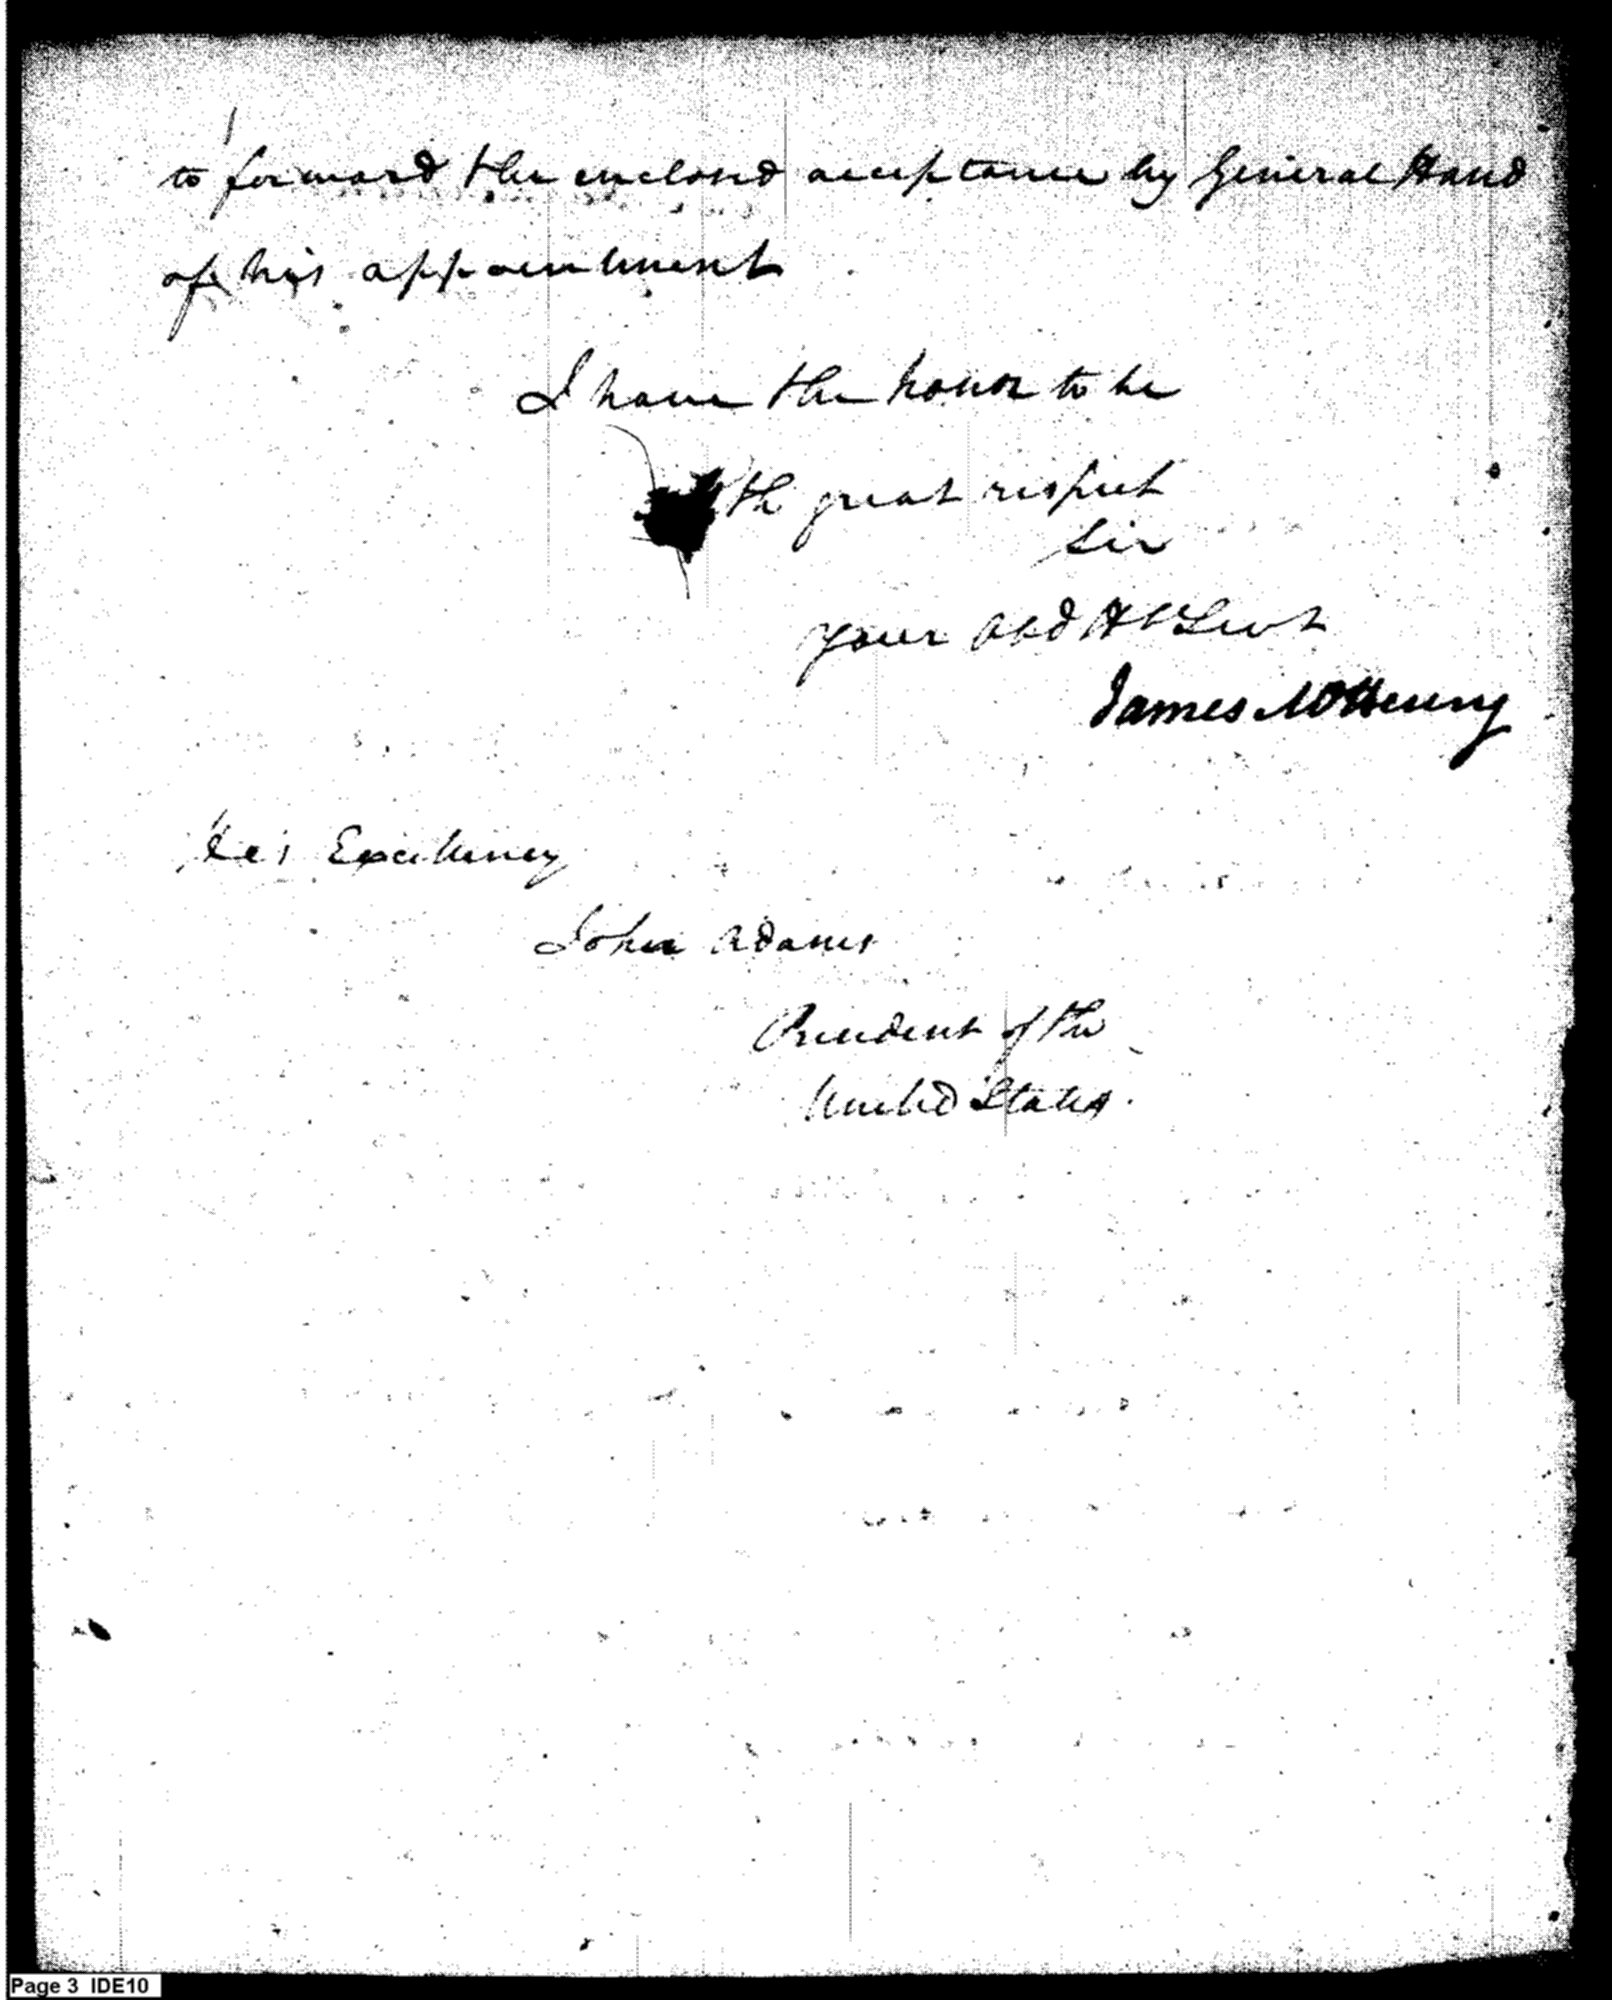 to forward the enclosed acceptance by General Hand
of his appointment
I have the honor to be
th great respect
Sir
your Obd Hble Servt
James McHenry
His Excellency
John Adams
President of the
United States.
Page 3 IDE10